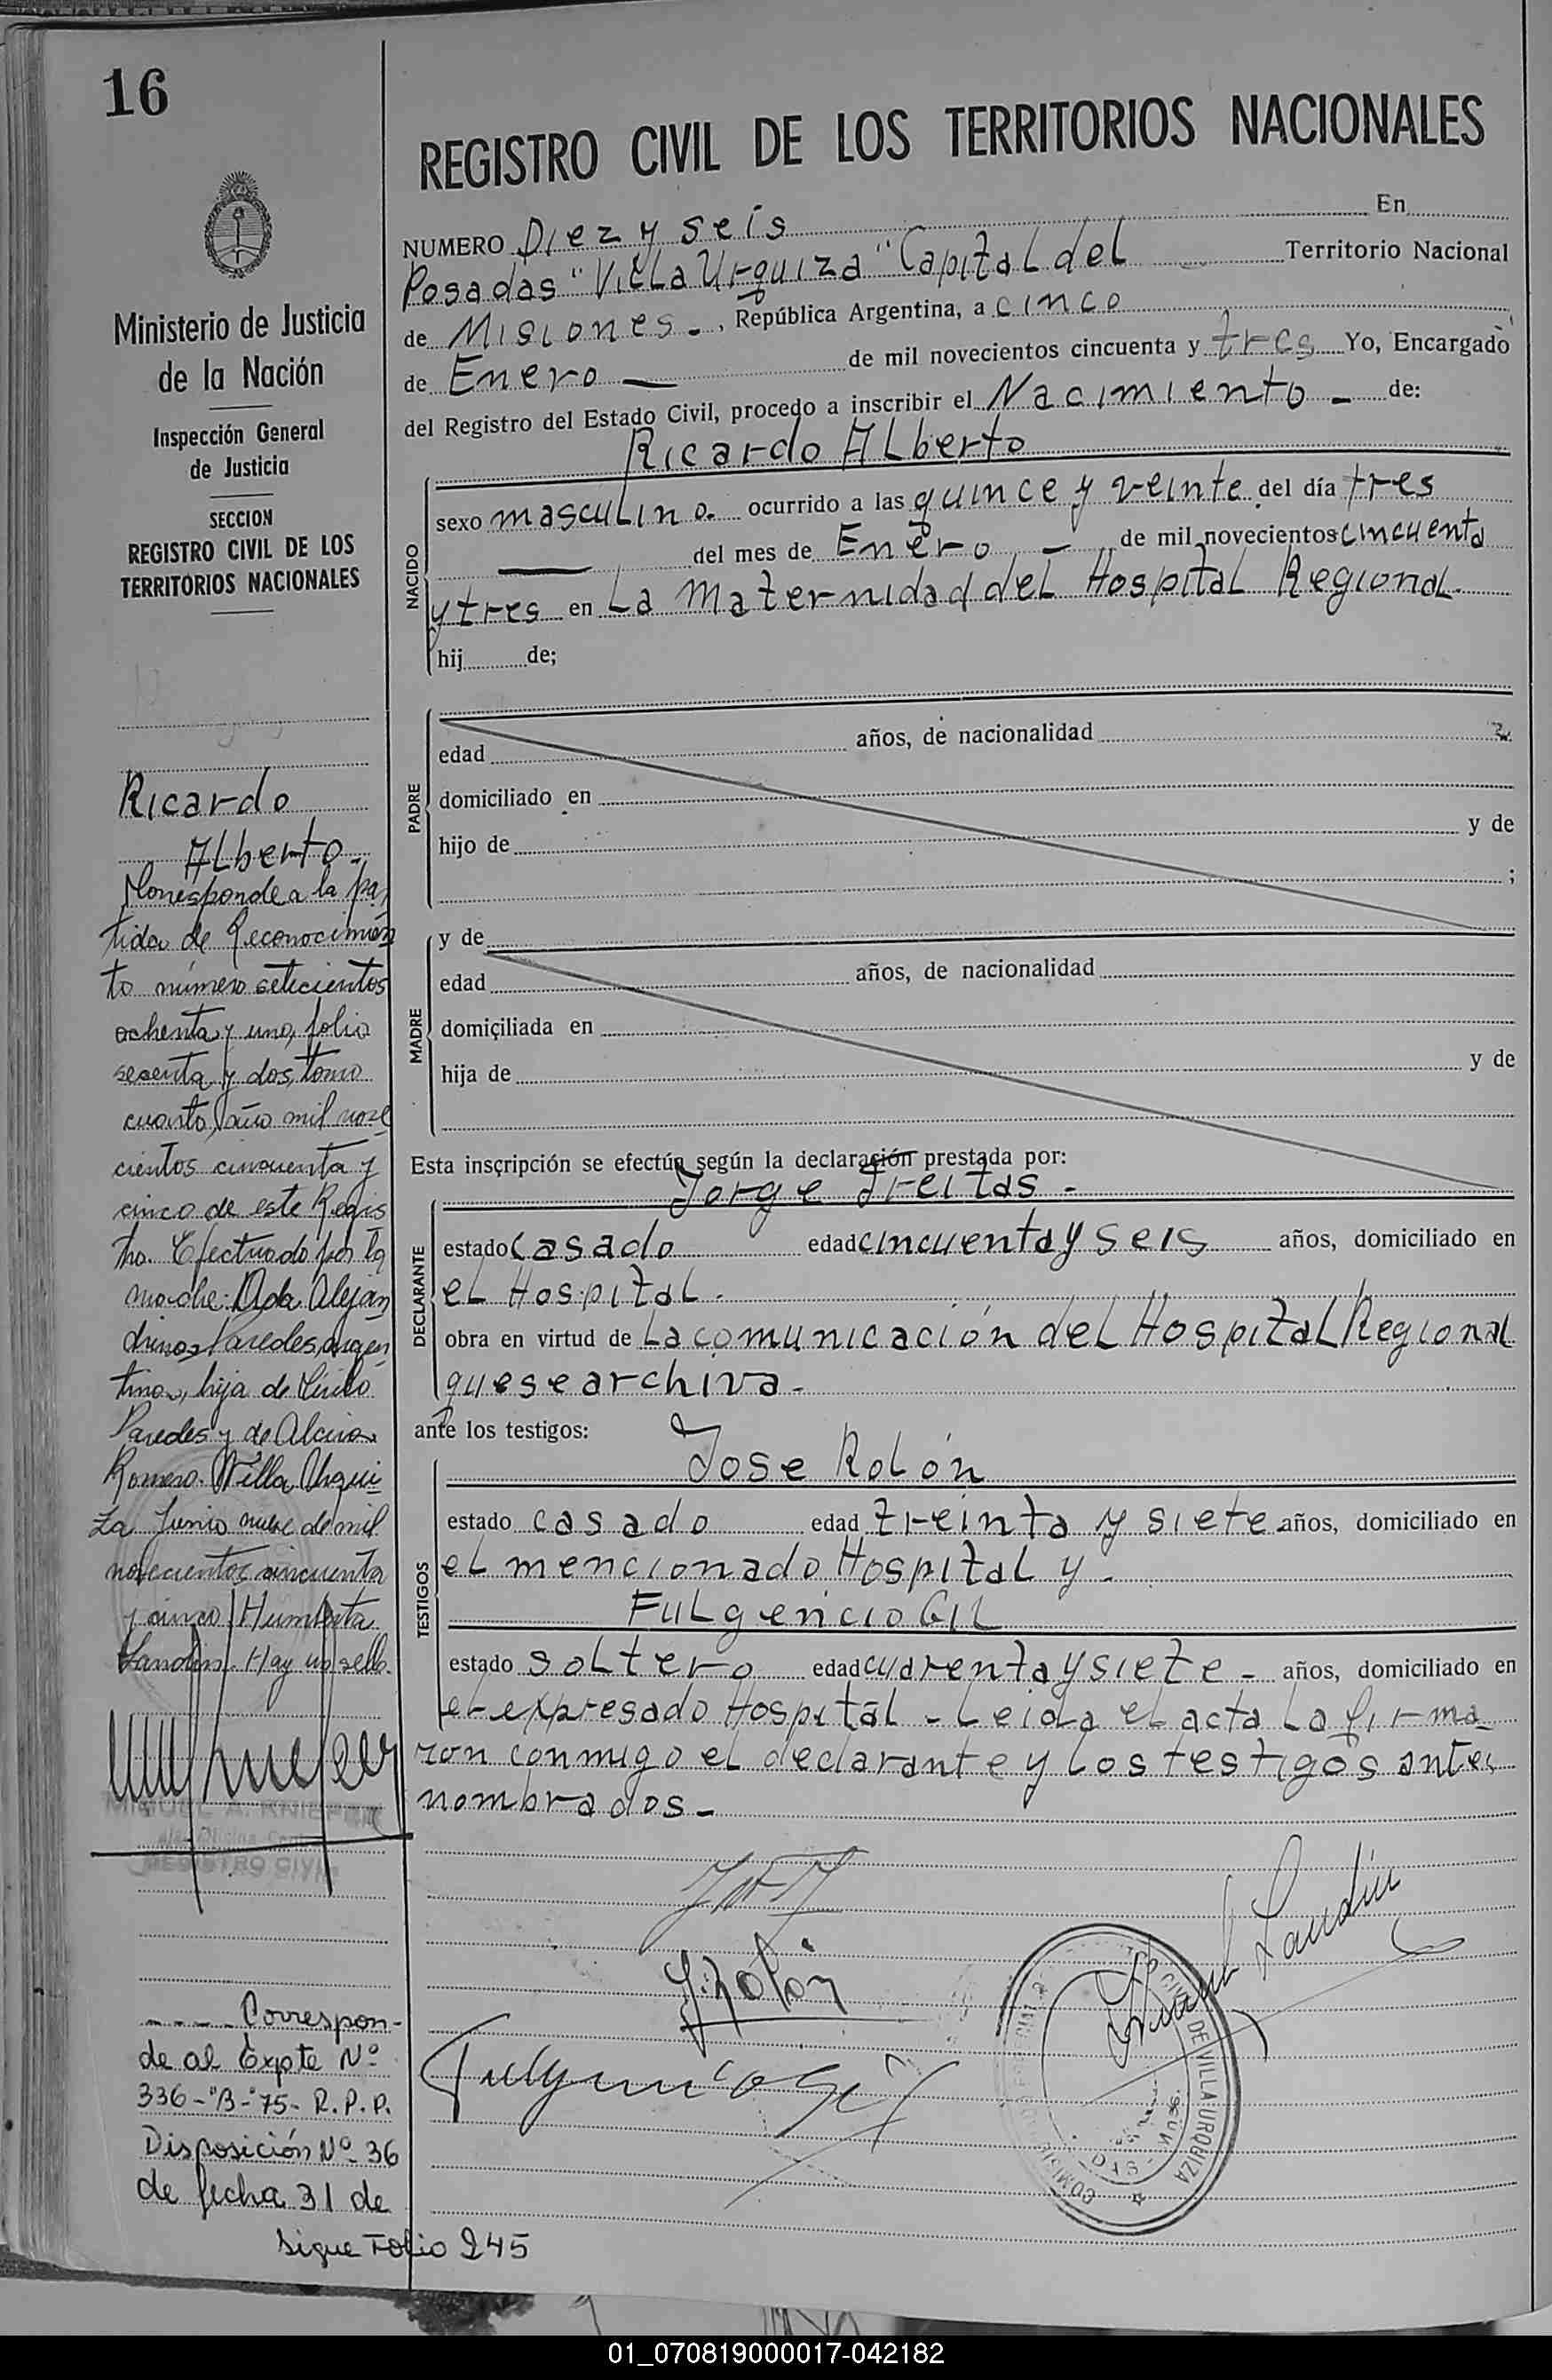 16
Ministerio de Justicia
de la Nación
Inspección General
de Justicia
SECCION
REGISTRO CIVIL DE LOS
TERRITORIOS NACIONALES
Ricardo
Alberto.
Corresponde a la par
tida de Reconocimien
to número setecientos
ochenta y uno, folio
sesenta y dos, tomo
cuarto, año mil nove
cientos cincuenta y
cinco de este Regis
tro. Efectuado por la
madre: Ada Alejan
drina Paredes, argen
tina, hija de Cirilo
Paredes y de Alcira
Romero. Villa Urqui
za Junio nueve de mil
novecientos cincuenta
y cinco. Humberto
Landin. Hay un sello.
MIGUEL A.
REGISTRO CIVIL
---- Correspon-
de al Expte Nº
336-"B-"75- R.P.P.
Disposición Nº 36
de fecha 31 de
Sigue Folio 245
REGISTRO CIVIL DE LOS TERRITORIOS NACIONALES
NUMERO Diez y seis En
Posadas "Villa Urquiza" Capital del Territorio Nacional
de Misiones-, República Argentina, a cinco
de Enero — de mil novecientos cincuenta y tres Yo, Encargado
del Registro del Estado Civil, procedo a inscribir el Nacimiento - de:
Ricardo Alberto
NACIDO
sexo masculino. ocurrido a las quince y veinte del día tres
— del mes de Enero - de mil novecientos cincuenta
y tres en La Maternidad del Hospital Regional.
hij de;
PADRE
edad años, de nacionalidad
domiciliado en
hijo de y de
;
MADRE
y de
edad años, de nacionalidad
domiciliada en
hija de y de
Esta inscripción se efectúa según la declaración prestada por:
Jorge Freitas -
DECLARANTE
estado casado edad cincuenta y seis años, domiciliado en
el Hospital.
obra en virtud de La comunicación del Hospital Regional
que se archiva-
ante los testigos:
Jose Rolón
TESTIGOS
estado casado edad treinta y siete años, domiciliado en
el mencionado Hospital y -
Fulgencio Gil
estado soltero edad cuarenta y siete - años, domiciliado en
el expresado Hospital - Leida el acta la firma-
ron conmigo el declarante y los testigos antes
nombrados-
J. Rolón
Fulgencio Gil
Landin
CIVIL DE VILLA URQUIZA
01_070819000017-042182